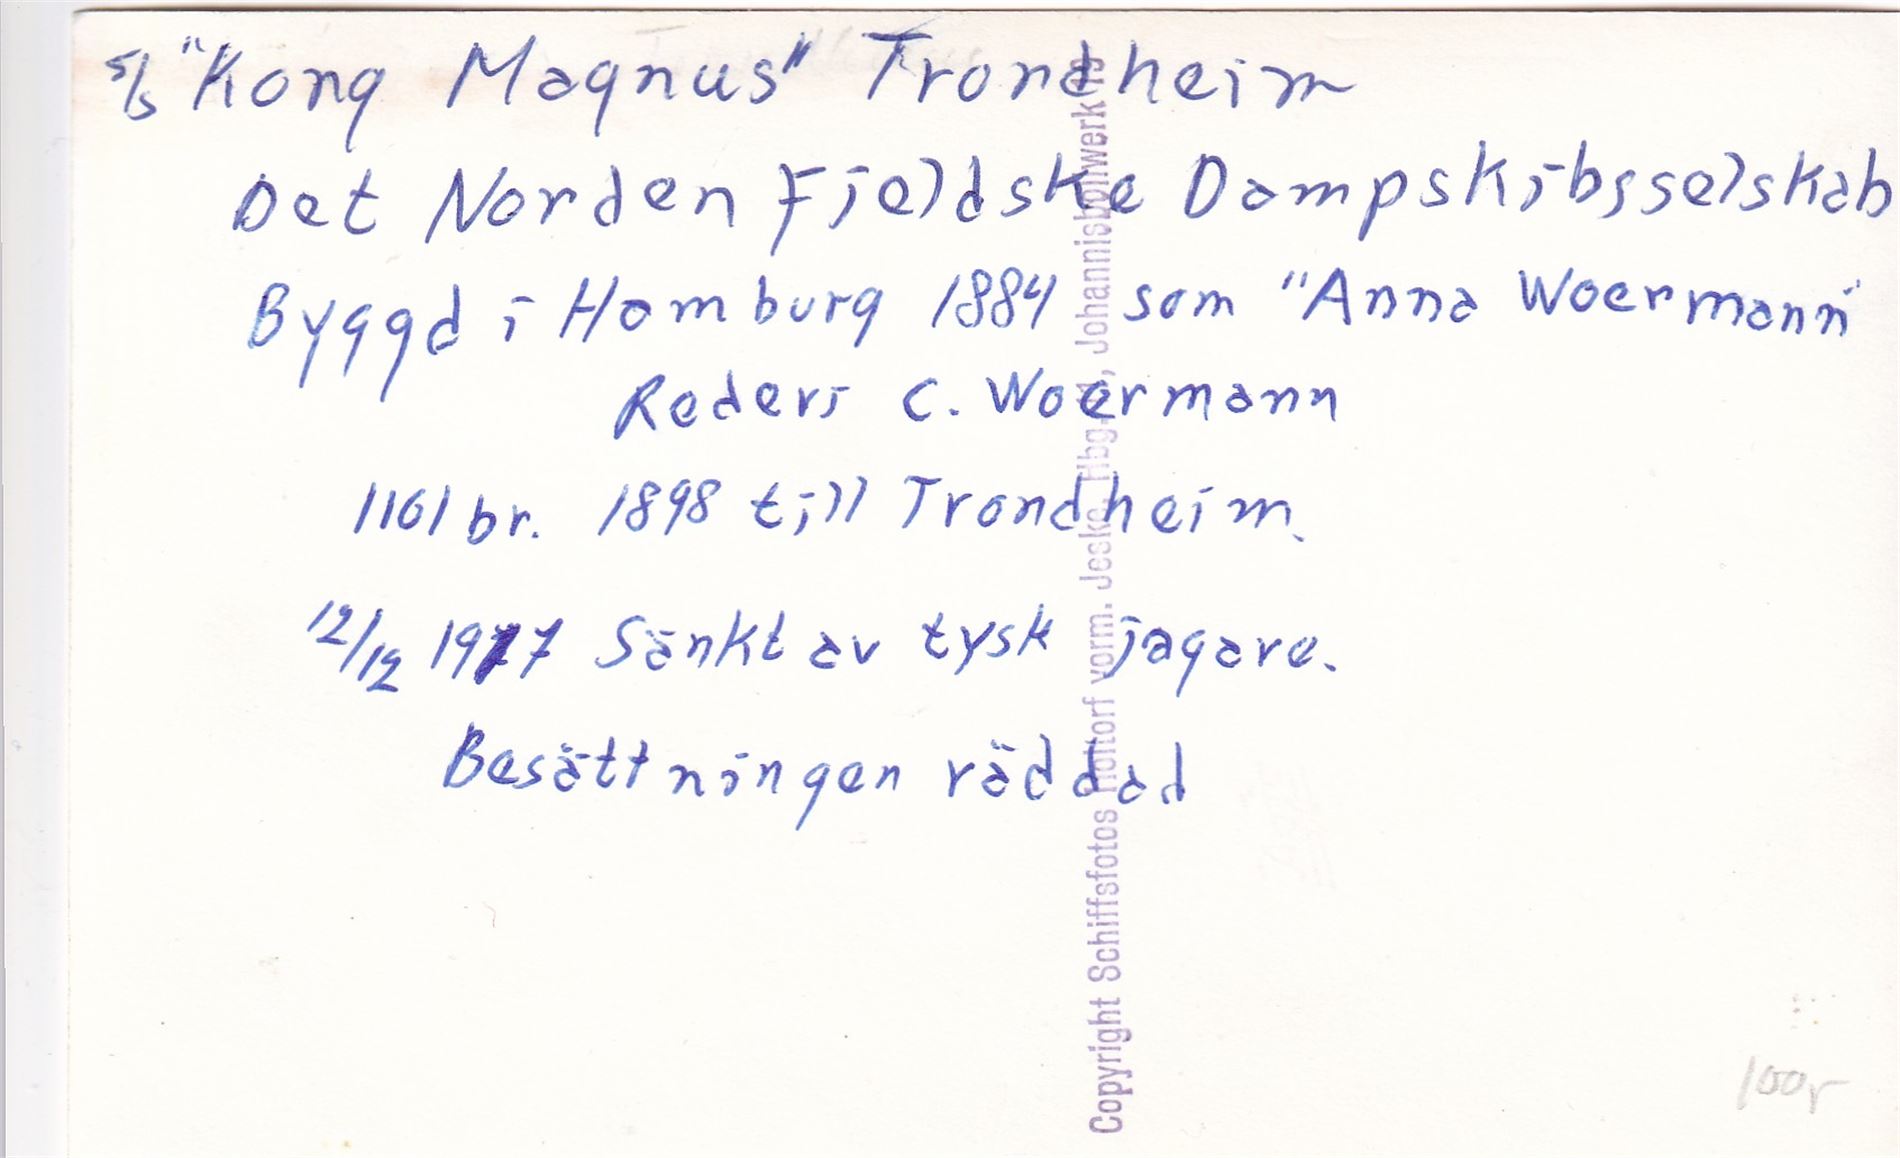 s/s "Kong Magnus" Trondheim
Det Nordenfjeldske Dampskibsselskab
Byggd i Hamburg 1884 som "Anna Woermann"
Rederi C. Woermann
1161 br. 1898 till Trondheim.
12/12 1917 Sänkt av tysk jagare.
Besättningen räddad
Copyright Schiffsfotos Holtorf vorm. Jeske, Hbg. , Johannisbollwerk 19
100r